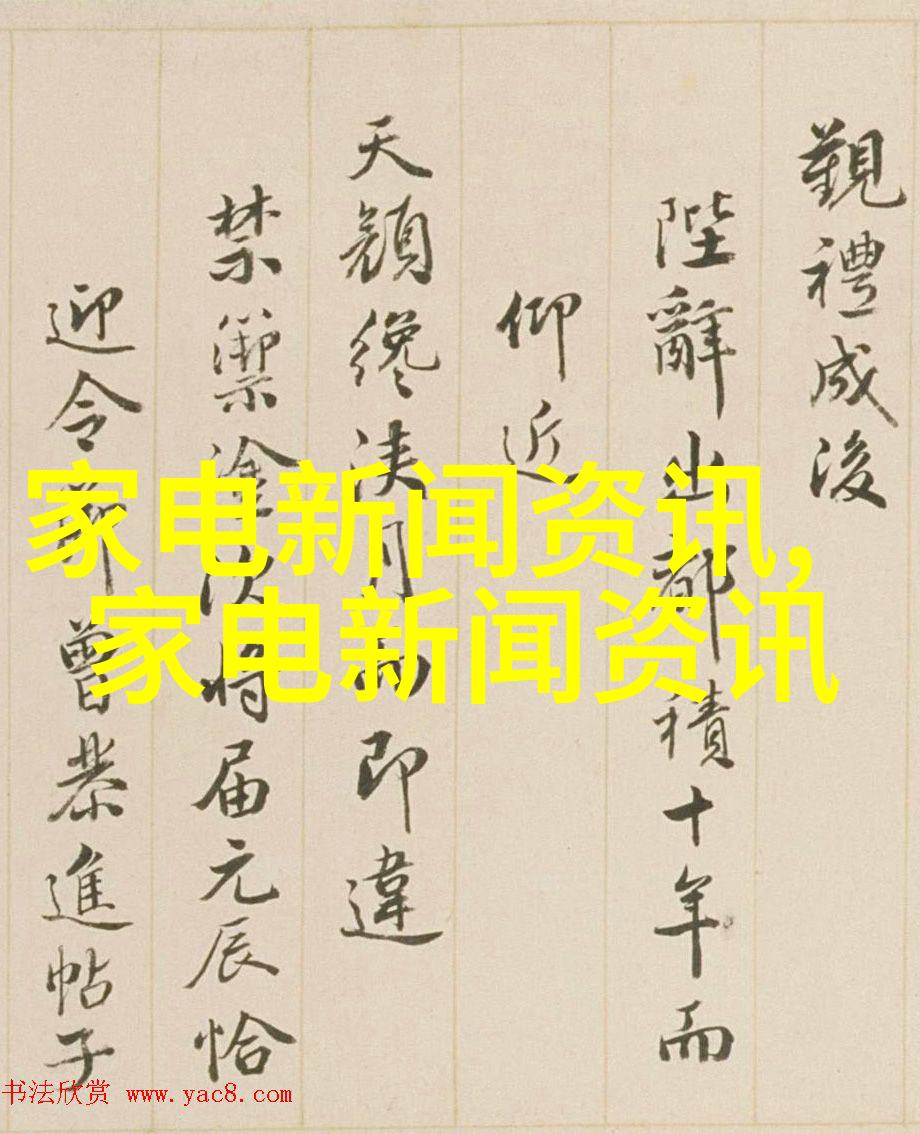 覲禮成後
陛辭出都積十年而
仰近
天顏纔浹月而即違
禁籞塗次將届元辰恰
迎令節曾恭進帖子
家电新闻资讯,
家电新闻资讯
书法欣赏 www.yac8.com